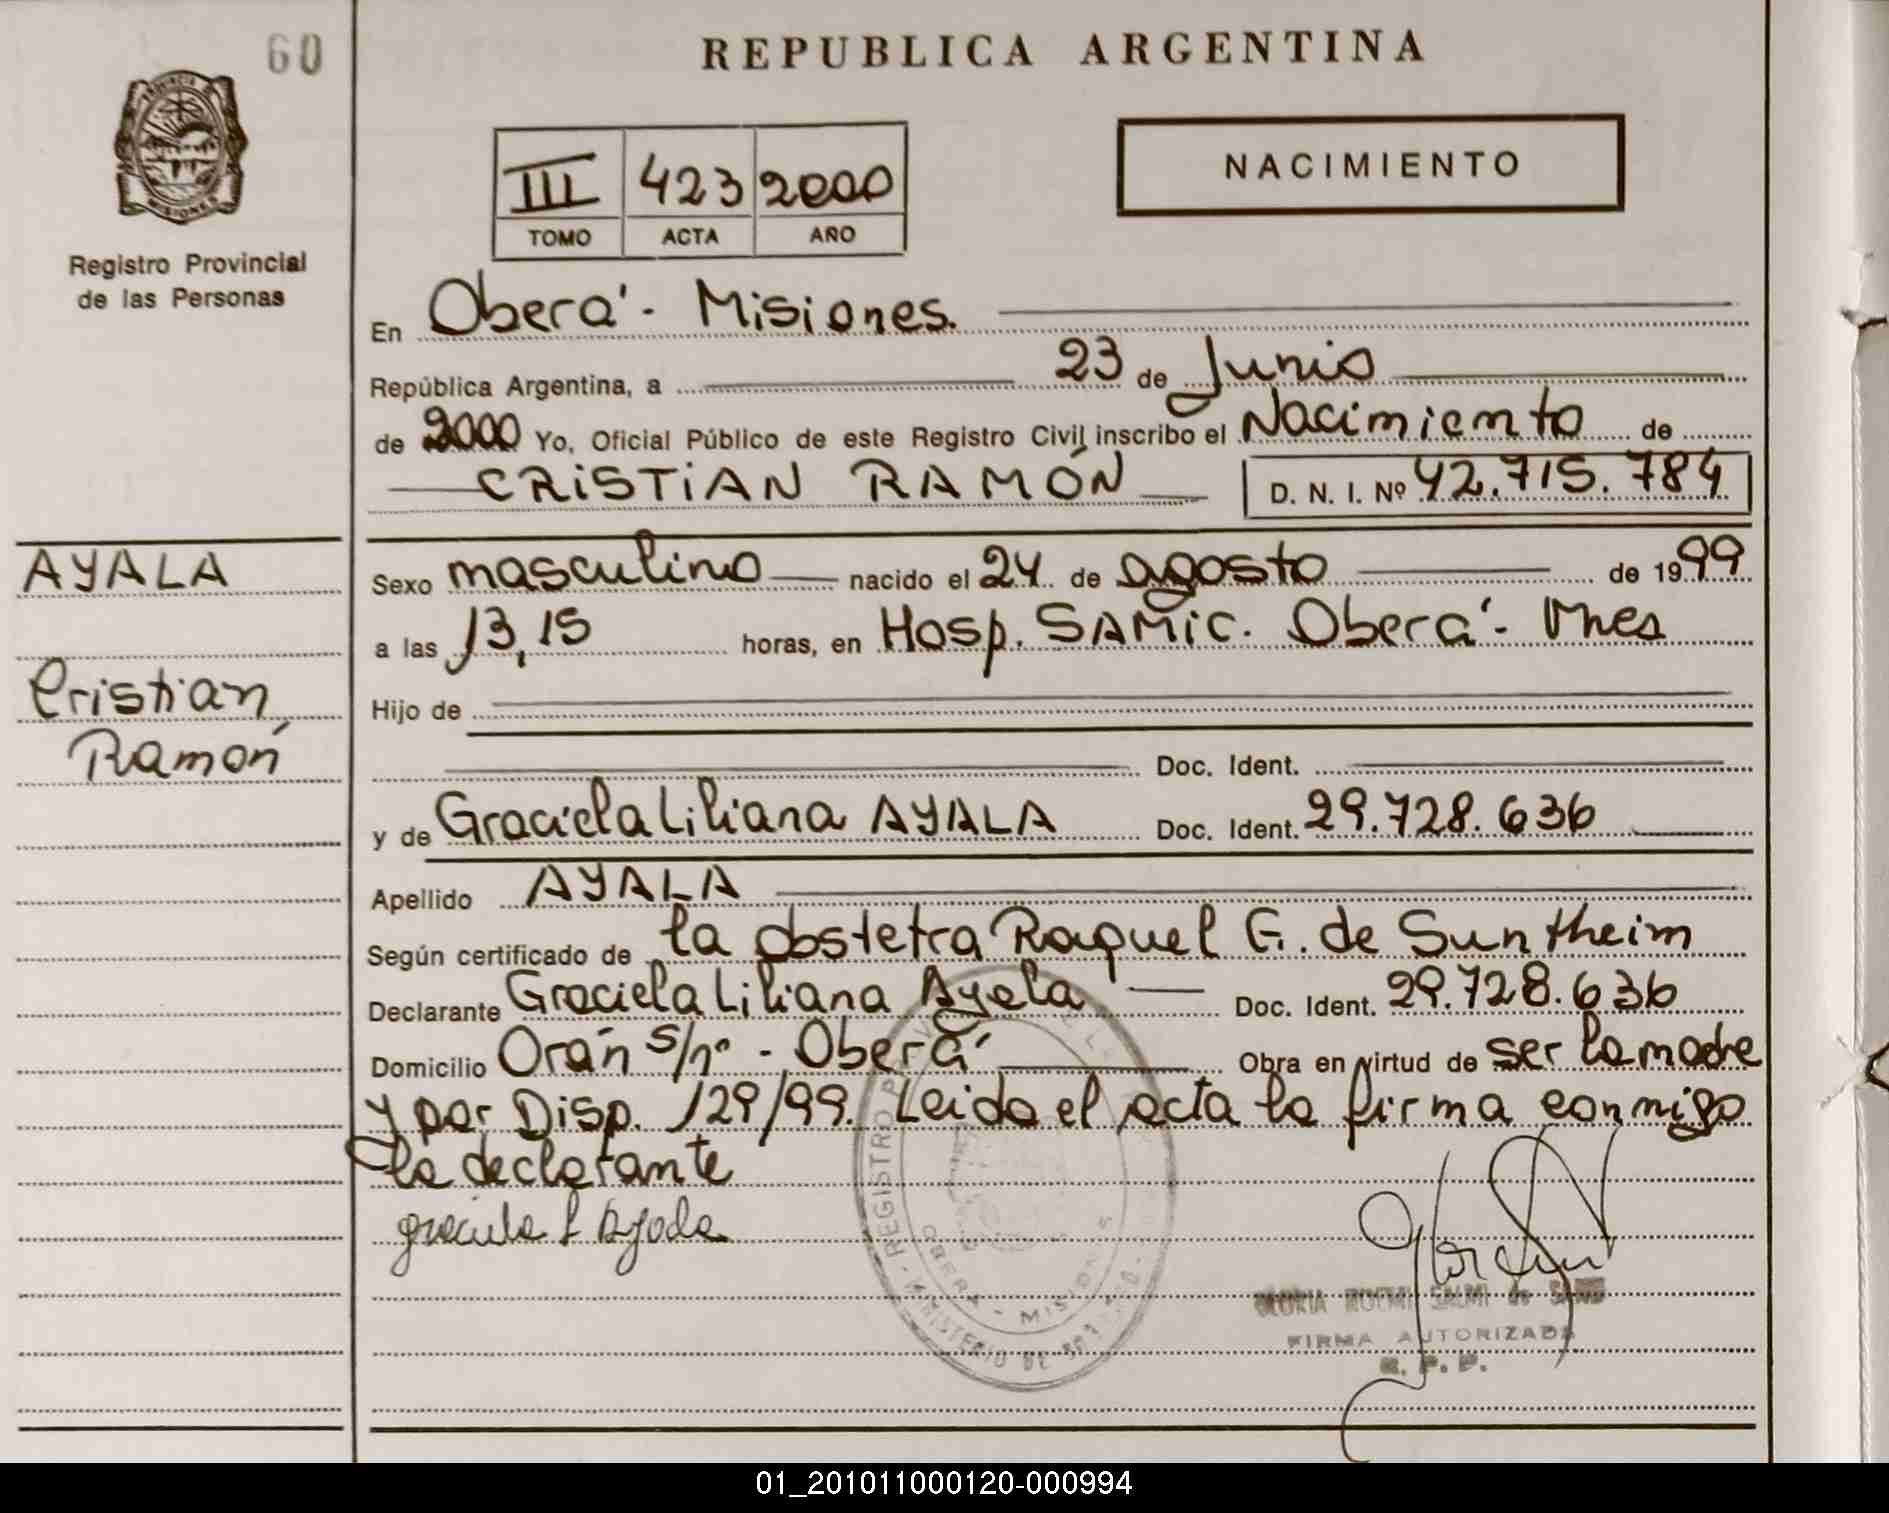 60
REPUBLICA ARGENTINA
PROVINCIA
MISIONES
Registro Provincial
de las Personas
III 423 2000
TOMO ACTA AÑO
NACIMIENTO
En Oberá - Misiones.
República Argentina, a 23 de Junio
de 2000 Yo, Oficial Público de este Registro Civil inscribo el Nacimiento de
CRISTIAN RAMÓN D. N. I. Nº 42.715.784
AYALA
Cristian
Ramón
Sexo masculino nacido el 24 de agosto de 1999
a las 13,15 horas, en Hosp. SAMIC. Oberá - Mnes
Hijo de
Doc. Ident.
y de Graciela Liliana AYALA Doc. Ident. 29.728.636
Apellido AYALA
Según certificado de la obstetra Raquel G. de Suntheim
Declarante Graciela Liliana Ayala Doc. Ident. 29.728.636
Domicilio Orán s/nº - Oberá Obra en virtud de ser la madre
y por Disp. 129/99. Leida el acta la firma conmigo
la declarante
REGISTRO
OBERA - MISIONES
MINISTERIO DE
GLORIA NOEMI SALMI de
FIRMA AUTORIZADA
R. P. P.
01_201011000120-000994